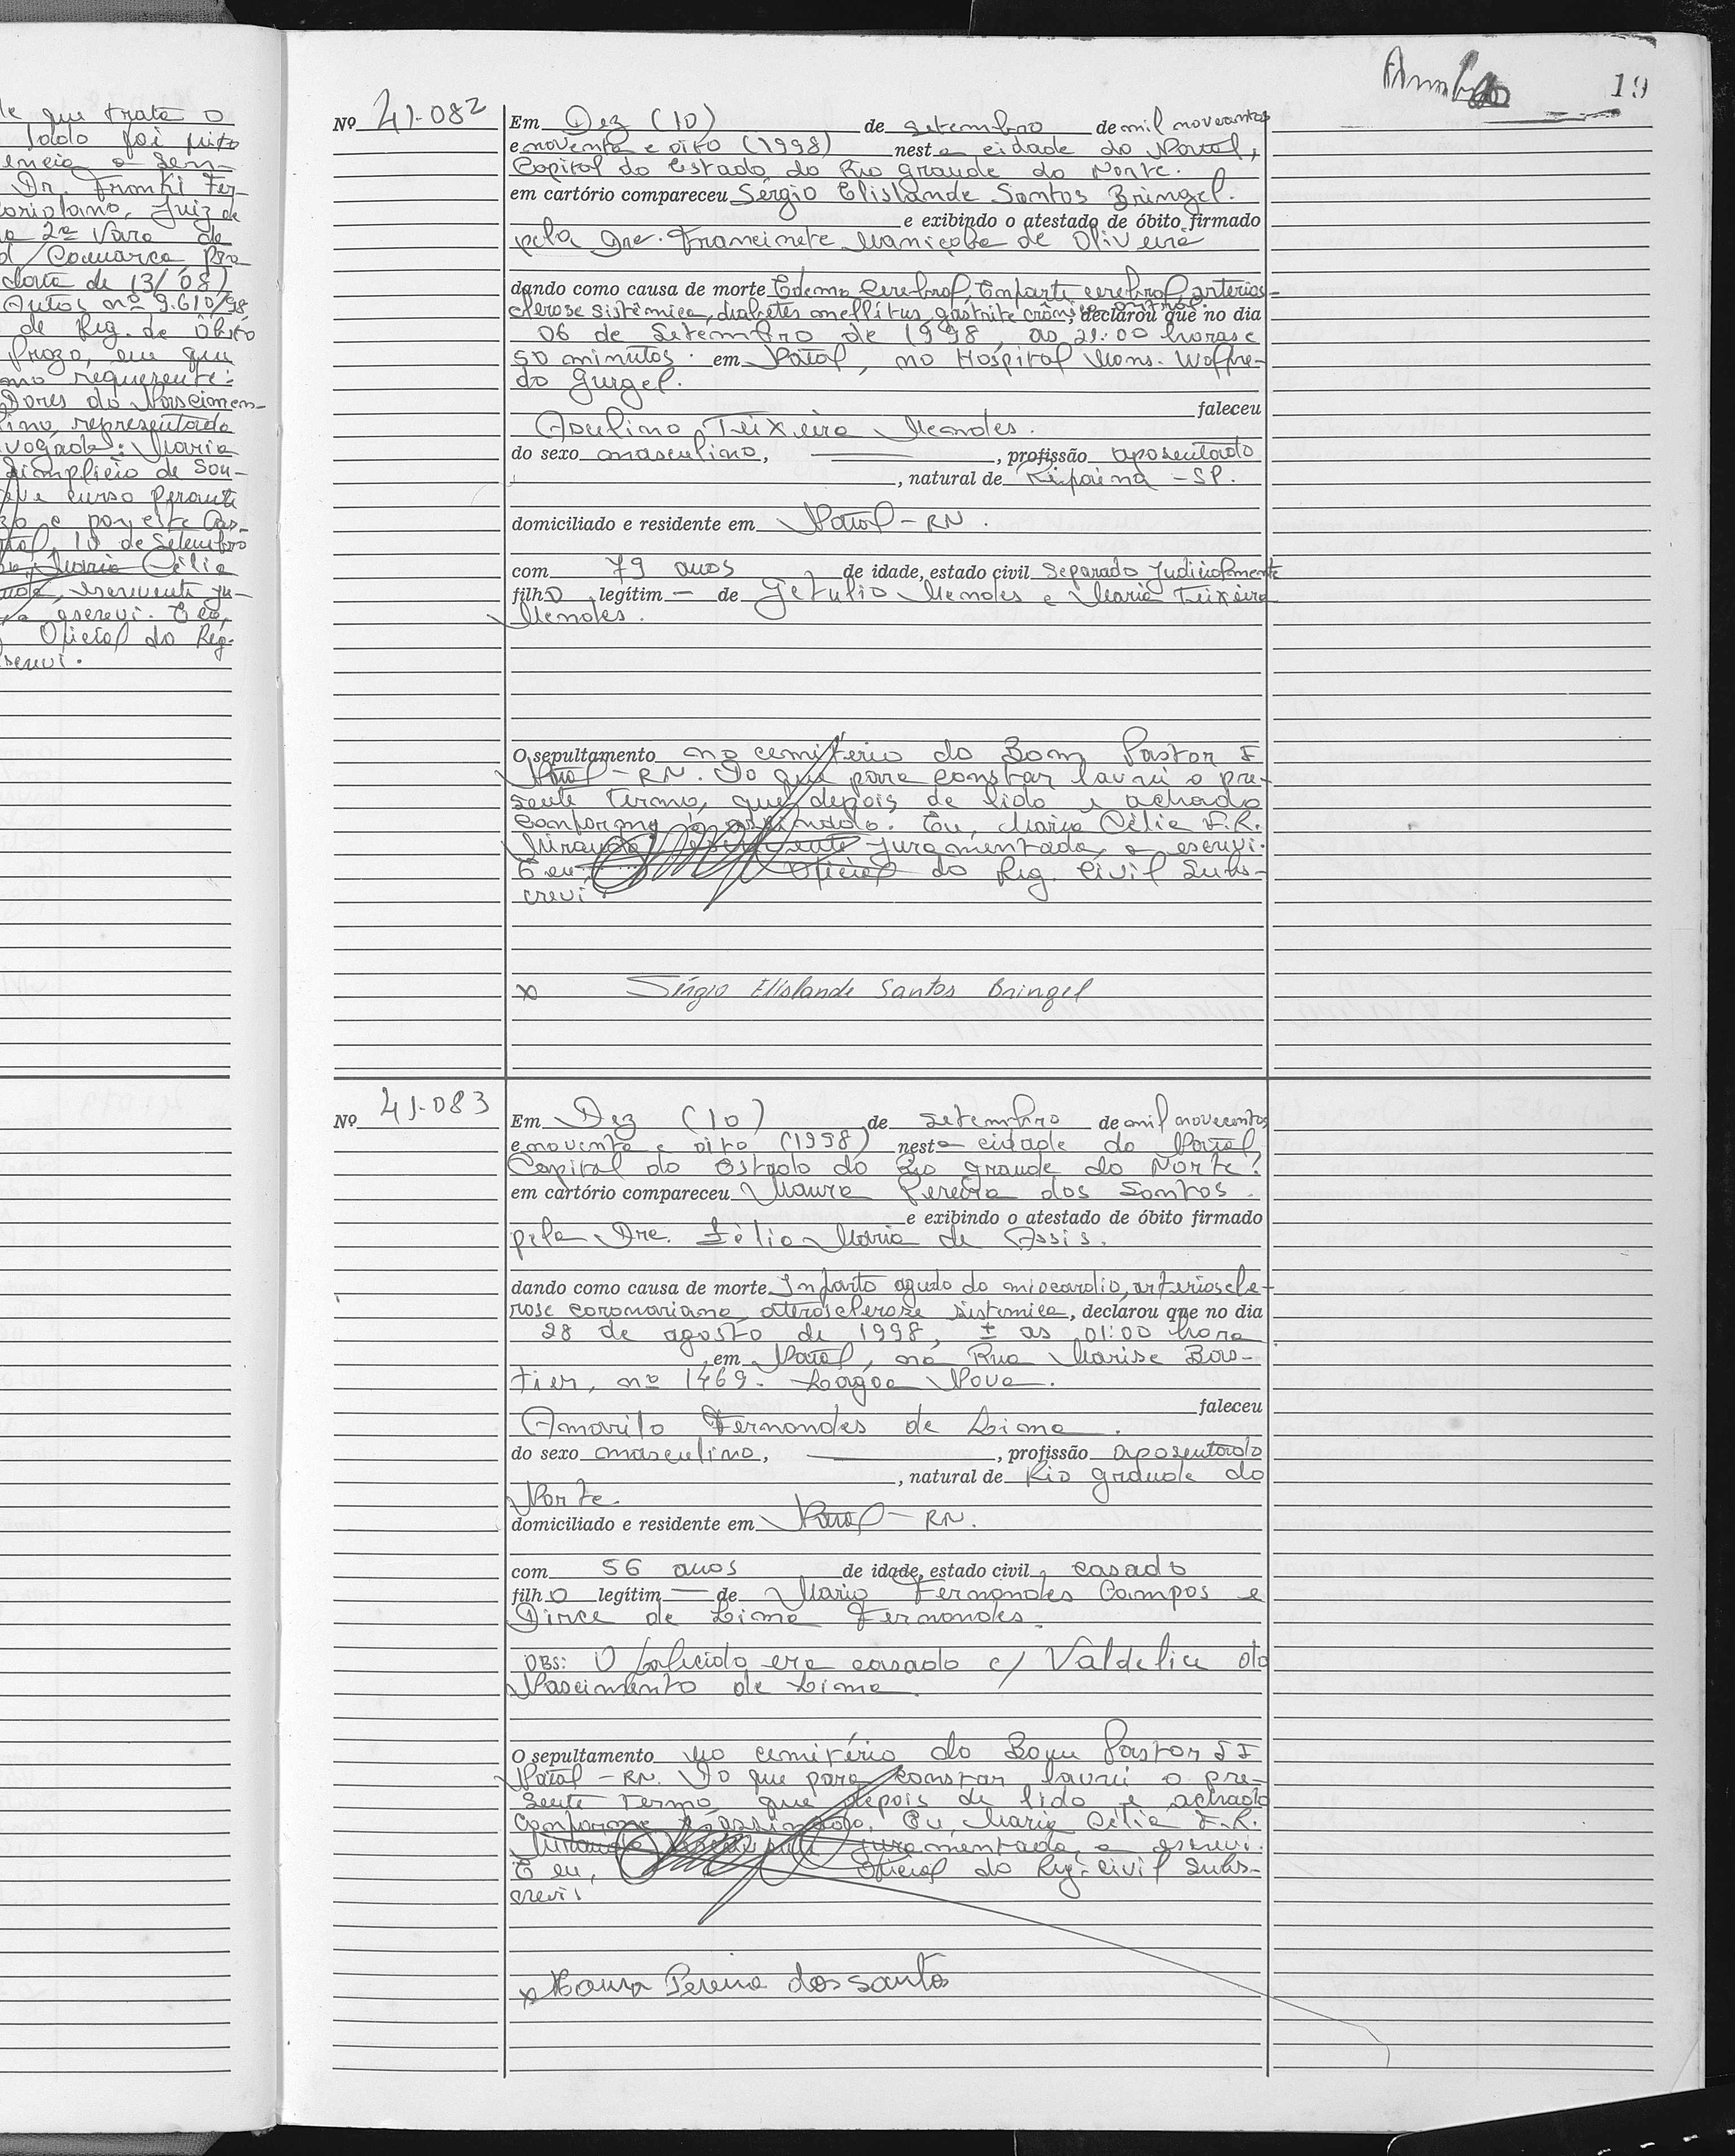 le que trata o
lado foi feito
encia a Sen-
Dr. Franki Fer-
oriolano, Juiz de
a 2ª Vara de
d/Comarca Pro-
data de 13/08/
Autos nº 9.610/98,
de Reg. de Óbito
Prazo, em que
mo requerente:
Dores do Nascimen-
lino, representada
vogada: Maria
Simplicio de Sou-
teve curso perante
zo e por este Car-
tal, 10 de Setembro
Maria Célia
escrevente ju-
a escrevi. E eu,
Oficial do Reg.
screvi.
19
Nº 41.082
Em Dez (10) de setembro de mil novecentos
e noventa e oito (1998) nesta cidade do Natal,
Capital do Estado do Rio Grande do Norte.
em cartório compareceu Sérgio Elislande Santos Bringel.
e exibindo o atestado de óbito firmado
pela Dra. Francinete Maniçoba de Oliveira
dando como causa de morte Edema Cerebral, Enfarte cerebral, arterios-
clerose sistêmica, diabetes mellitus, gastrite crônica antral. declarou que no dia
06 de Setembro de 1998, as 21:00 horas e
50 minutos. em Natal, no Hospital Mons. Walfre-
do Gurgel.
faleceu
Teixeira Mendes.
do sexo masculino, , profissão aposentado
, natural de - SP.
domiciliado e residente em Natal - RN.
com 79 anos de idade, estado civil Separado Judicialmente
filho legítim — de Getulio Mendes e Maria Teixeira
Mendes.
O sepultamento no cemitério do Bom Pastor I
Natal - RN. Do que para constar lavrei o pre-
sente termo, que depois de lido e achado
conforme é assinado. Eu, Maria Célia F.R.
Miranda, escrevente juramentada, o escrevi.
E eu, Oficial do Reg. Civil Subs-
crevi.
x Sérgio Elislande Santos Bringel
Nº 41.083
Em Dez (10) de setembro de mil novecentos
e noventa e oito (1998) nesta cidade do Natal,
Capital do Estado do Rio Grande do Norte.
em cartório compareceu Maura Pereira dos Santos.
e exibindo o atestado de óbito firmado
pela Dra. Maria de Assis.
dando como causa de morte Infarto agudo do miocardio, arterioscle-
rose coronariana, aterosclerose sistemica, declarou que no dia
28 de agosto de 1998, ± as 01:00 hora
, em Natal, na Rua Marise Bas-
tier, nº 1469. Lagoa Nova.
faleceu
Amarilo Fernandes de Lima.
do sexo masculino, , profissão aposentado
, natural de Rio Grande do
Norte.
domiciliado e residente em Natal - RN.
com 56 anos de idade, estado civil casado
filho legítim — de Mario Fernandes Campos e
Dirce de Lima Fernandes.
OBS: O falecido era casado c/ Valdelice do
Nascimento de Lima.
O sepultamento no cemitério do Bom Pastor II
Natal - RN. Do que para constar lavrei o pre-
sente termo, que depois de lido e achado
conforme é assinado. Eu, Maria Célia F.R.
Miranda escrevente juramentada, o escrevi.
E eu, Oficial do Reg. civil Subs-
crevi.
x Maura Pereira dos Santos